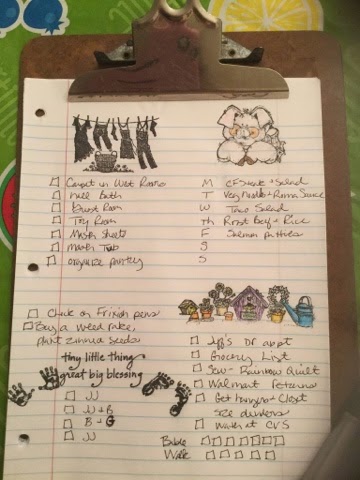 Carpet in Wet Rooms
Bath
Guest Room
Toy Room
Mstr Sheets
Mstr Tub
organize pantry
M CF Steak + Salad
T Veg Noodle + Roma Sauce
W Taco Salad
Th Roast Beef + Rice
F Salmon patties
S
S
Check on Frixion pens
Buy a weed rake,
plant zinnia seeds
tiny little thing
great big blessing
JJ
JJ + B
B + G
JJ
Dr appt
Grocery List
Sew - Rainbow Quilt
Walmart Returns
Get hangers + Closet
size dividers
at CVS
Bible
Walk